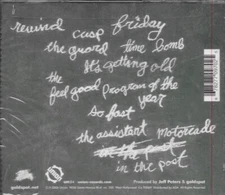 rewind cusp friday
the guard time bomb
It's getting old
the
feel good program of the
year
so fast
the assistant motorcade
in the past
in the past
Produced by Jeff Peters & goldspot
goldspot.net